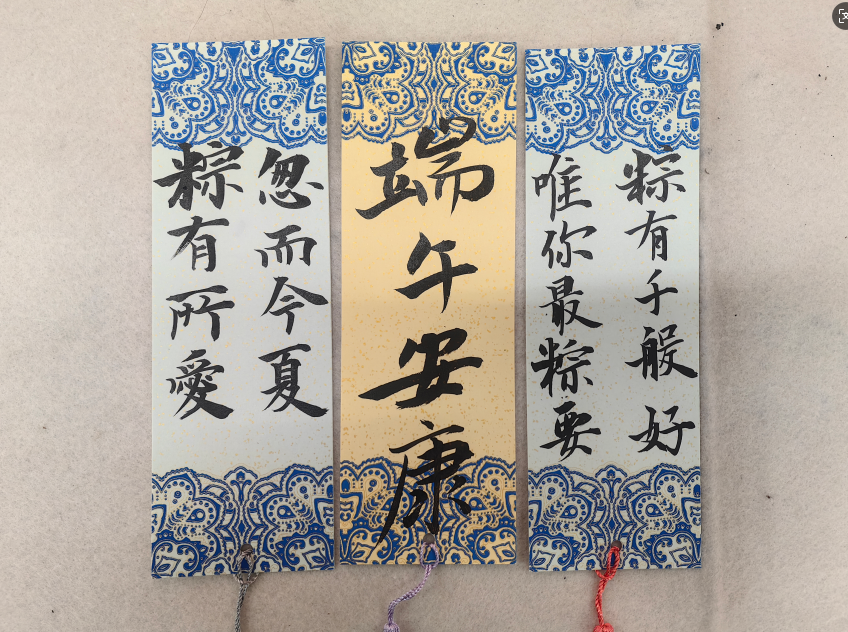 忽而今夏
粽有所愛
端午安康
粽有千般好
唯你最粽要